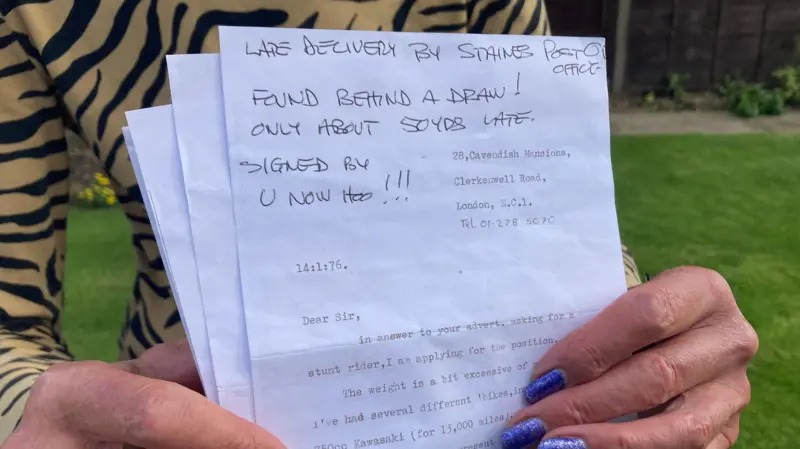 LATE DELIVERY BY STAINES POST O
OFFICE
FOUND BEHIND A DRAW!
ONLY ABOUT 50YDS LATE.
SIGNED BY
U NOW HOO!!!
28,Cavendish Mansions,
Clerkenwell Road,
London, E.C.1.
Tel. 01-278 5070
14:1:76.
Dear Sir,
in answer to your advert, asking for a
stunt rider,I am applying for the position.
The weight is a bit excessive of
i've had several different 'bikes,in
Kawasaki (for 13,000 miles)
present